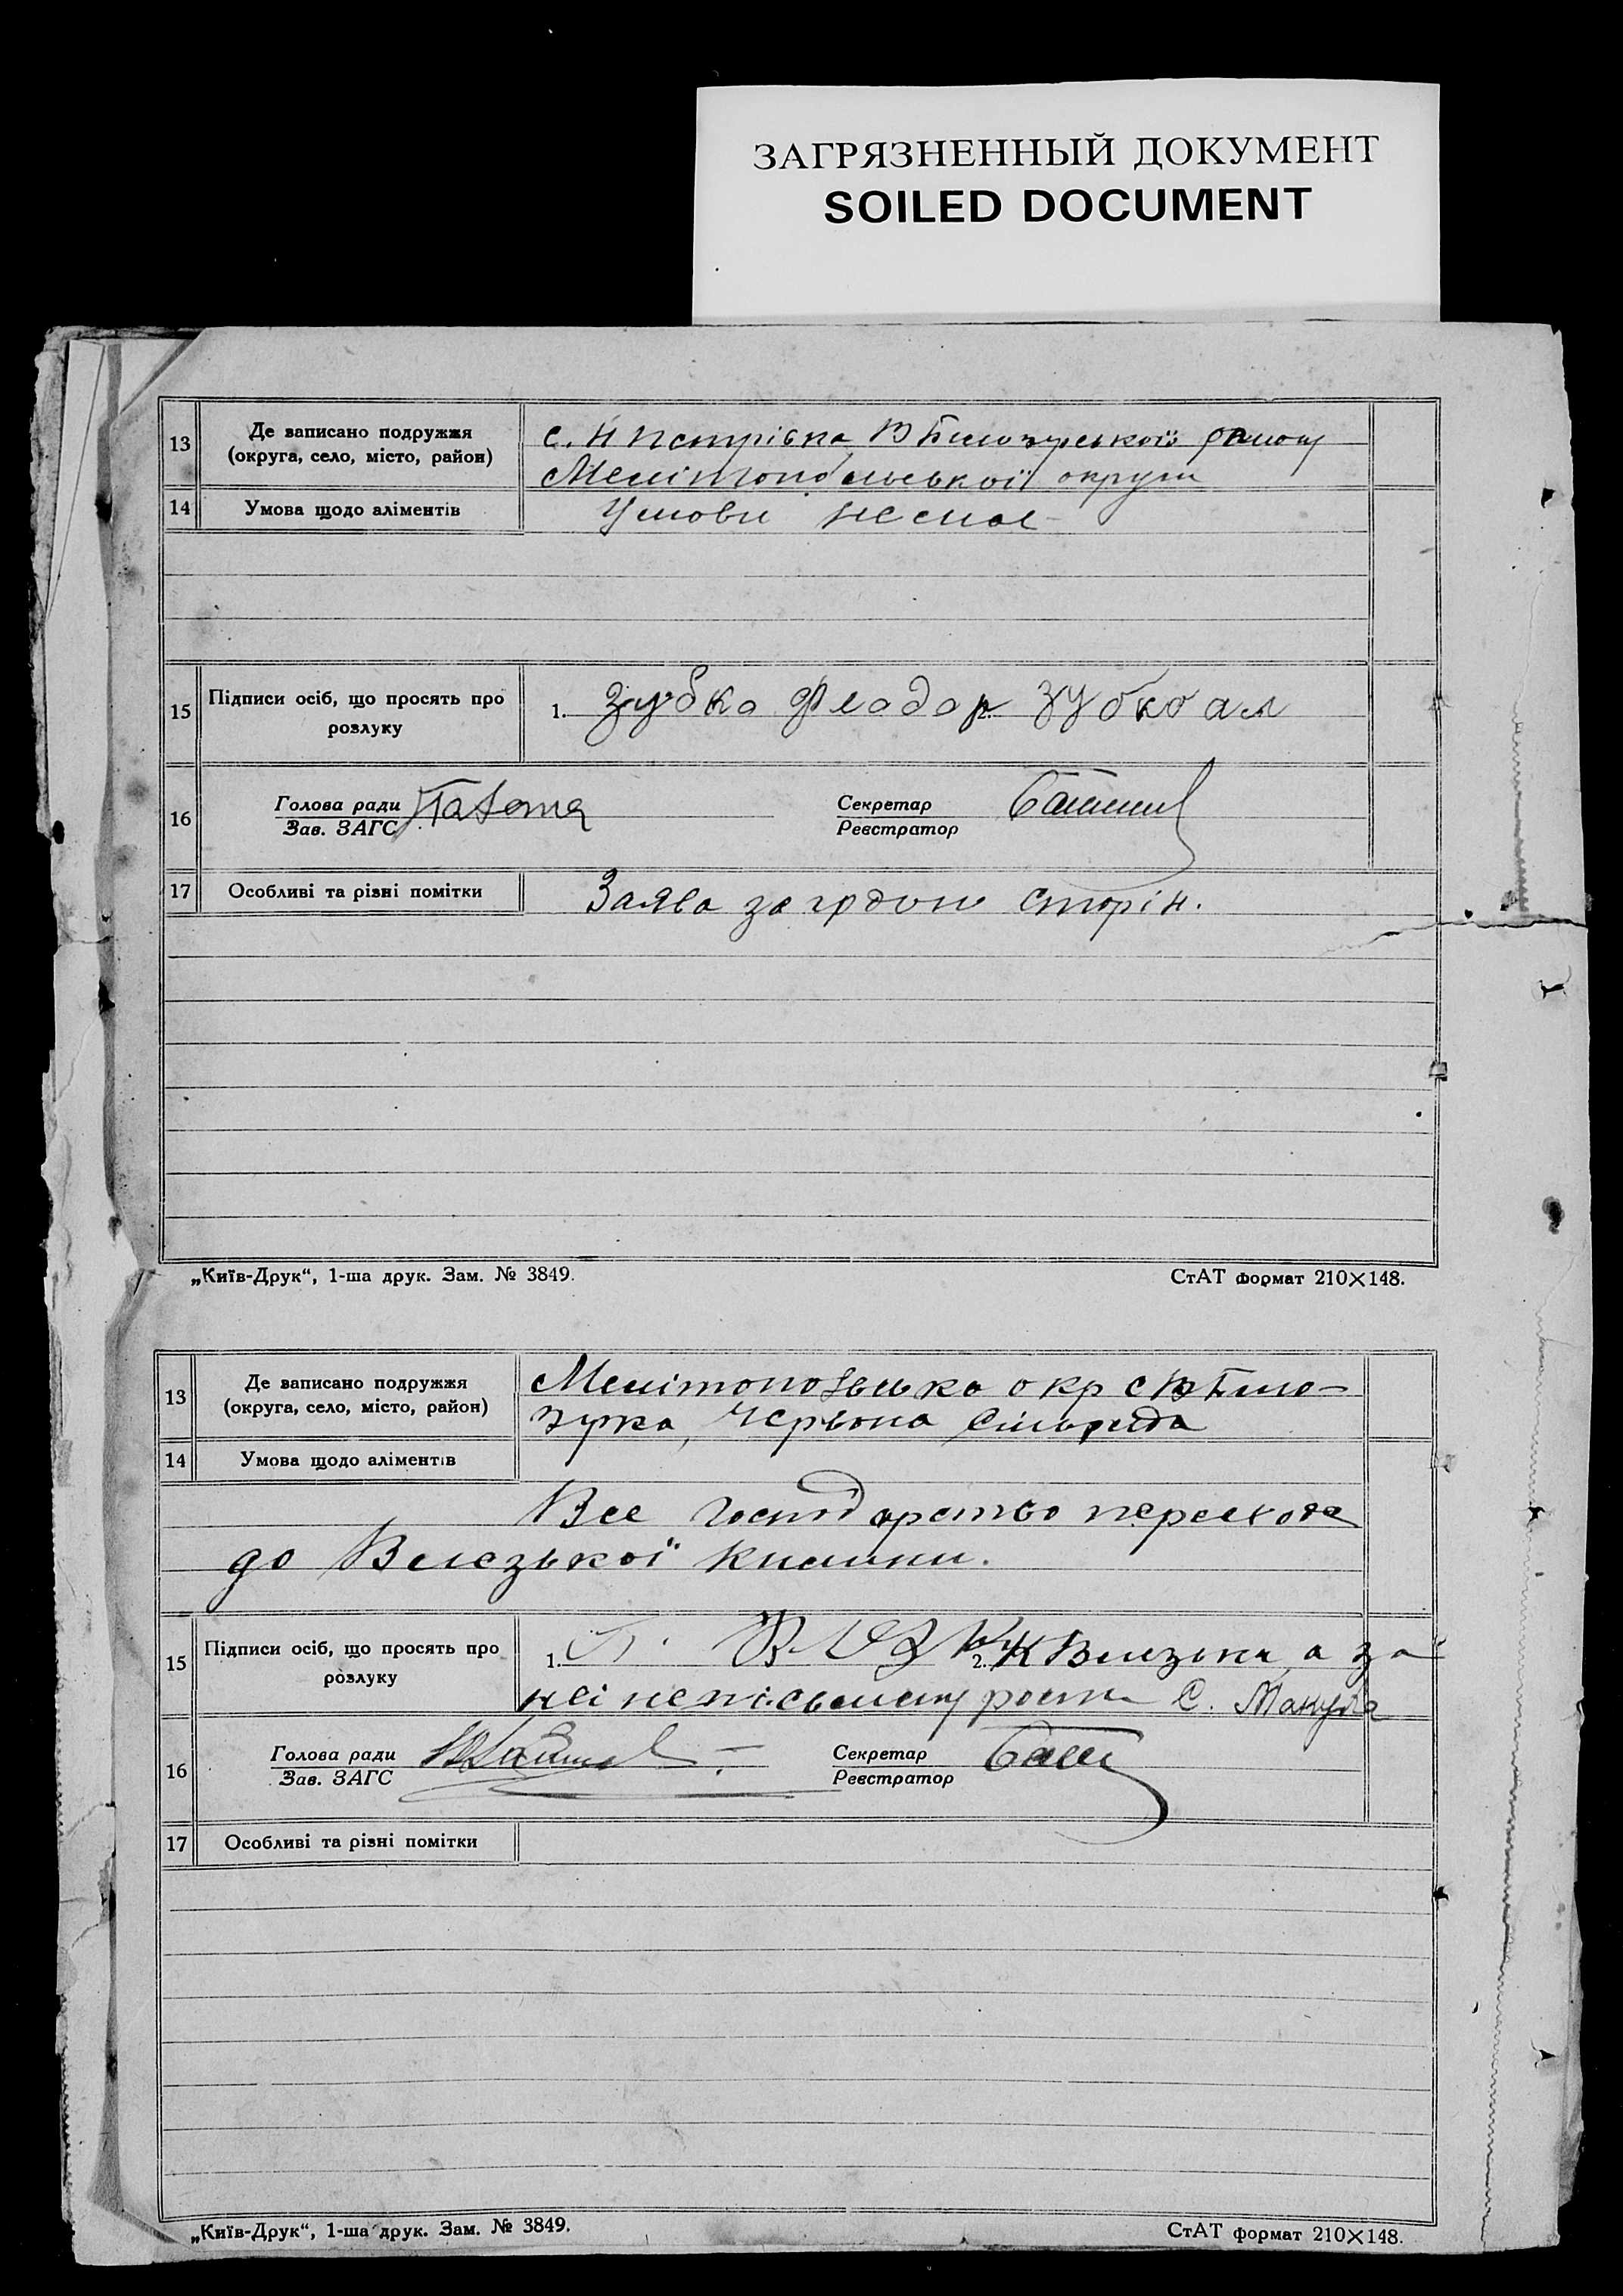 ЗАГРЯЗНЕННЫЙ ДОКУМЕНТ
SOILED DOCUMENT
13 Де записано подружжя (округа, село, місто, район)
с. Н Петрівка, В Білозурської району
Мелітопольської округи
14 Умова щодо аліментів
Умови немає
15 Підписи осіб, що просять про розлуку
1. Зубко Феодор 2. Зубко
16 Голова ради
Зав. ЗАГС
Секретар
Реєстратор
17 Особливі та різні помітки
Заява за згодою сторін.
„Київ-Друк“, 1-ша друк. Зам. № 3849.
СтАТ формат 210×148.
13 Де записано подружжя (округа, село, місто, район)
Мелітопольська окр с В Біло-
зурка, Червона сільрада
14 Умова щодо аліментів
Все господарство переходе
до Велезької
15 Підписи осіб, що просять про розлуку
1. 2. Велезька, а за
неї неписьменну С.
16 Голова ради
Зав. ЗАГС
Секретар
Реєстратор
17 Особливі та різні помітки
„Київ-Друк“, 1-ша друк. Зам. № 3849.
СтАТ формат 210×148.